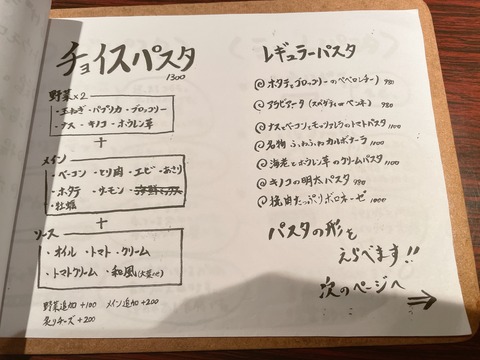 チョイスパスタ
1300
野菜×2
・玉ねぎ・パプリカ・ブロッコリー
・ナス・キノコ・ホウレン草
+
メイン
・ベーコン・とり肉・エビ・あさり
・ホタテ・サーモン・海鮮ミックス
・牡蠣
+
ソース
・オイル・トマト・クリーム
・トマトクリーム・和風(大葉)
野菜追加+100 メイン追加+200
炙りチーズ+200
レギュラーパスタ
@ホタテとブロッコリーのペペロンチーノ 980
@アラビアータ(スパゲティorペンネ) 980
@ナスとベーコンとモッツァレラのトマトパスタ 1100
@名物 ふわふわカルボナーラ 1100
@海老とホウレン草のクリームパスタ 1100
@キノコの明太パスタ 980
@挽肉たっぷりボロネーゼ 1000
パスタの形を
えらべます!!
次のページへ
⇒